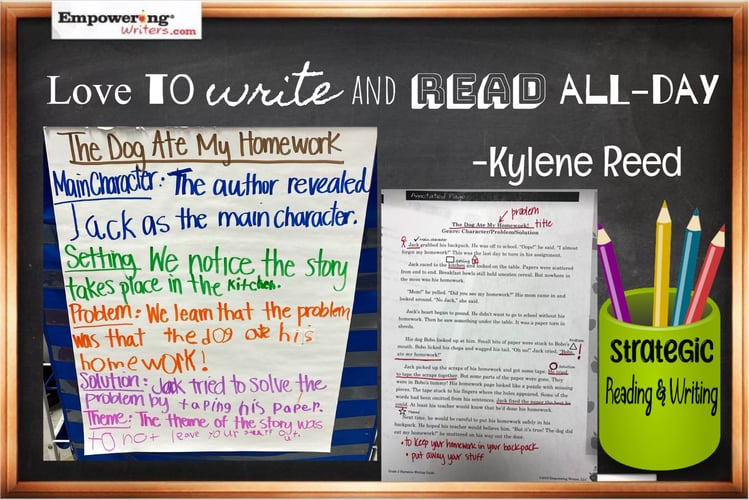 Empowering®
Writers.com
Love TO write AND READ ALL-DAY
-Kylene Reed
The Dog Ate My Homework
Main Character: The author revealed
Jack as the main character.
Setting: We notice the story
takes place in the Kitchen.
Problem: We learn that the problem
was that the dog ate his
homework!
Solution: Jack tried to solve the
problem by taping his paper.
Theme: The theme of the story was
to not leave your out.
Annotated Page
problem
The Dog Ate My Homework! title
Genre: Character/Problem/Solution
main character
Jack grabbed his backpack. He was off to school. "Oops!" he said. "I almost
forgot my homework!" This was the last day to turn in his assignment.
setting
Jack raced to the kitchen and looked on the table. Papers were scattered
from end to end. Breakfast bowls still held uneaten cereal. But nowhere in
the mess was his homework.
"Mom!" he yelled. "Did you see my homework?" His mom came in and
looked around. "No Jack," she said.
Jack's heart began to pound. He didn't want to go to school without his
homework. Then he saw something under the table. It was a paper torn in
shreds.
Problem
His dog Bobo looked up at him. Small bits of paper were stuck to Bobo's
mouth. Bobo licked his chops and wagged his tail. "Oh no!" Jack cried, "Bobo,
ate my homework!"
Solution
Jack picked up the scraps of his homework and got some tape. He tried
to tape the scraps together. But some parts of the paper were gone. They
were in Bobo's tummy! His homework page looked like a puzzle with missing
pieces. The tape stuck to his fingers where the holes appeared. Some of the
words had been omitted from his sentences. Jack fixed the paper the best he
could. At least his teacher would know that he'd done his homework.
Theme
Next time, he would be careful to put his homework safely in his
backpack. He hoped his teacher would believe him. "But it's true! The dog did
eat my homework!" he muttered on his way out the door.
• to keep your homework in your backpack
• put away your stuff
Grade 2 Narrative Writing Guide
©2019 Empowering Writers, LLC
Strategic
Reading & Writing